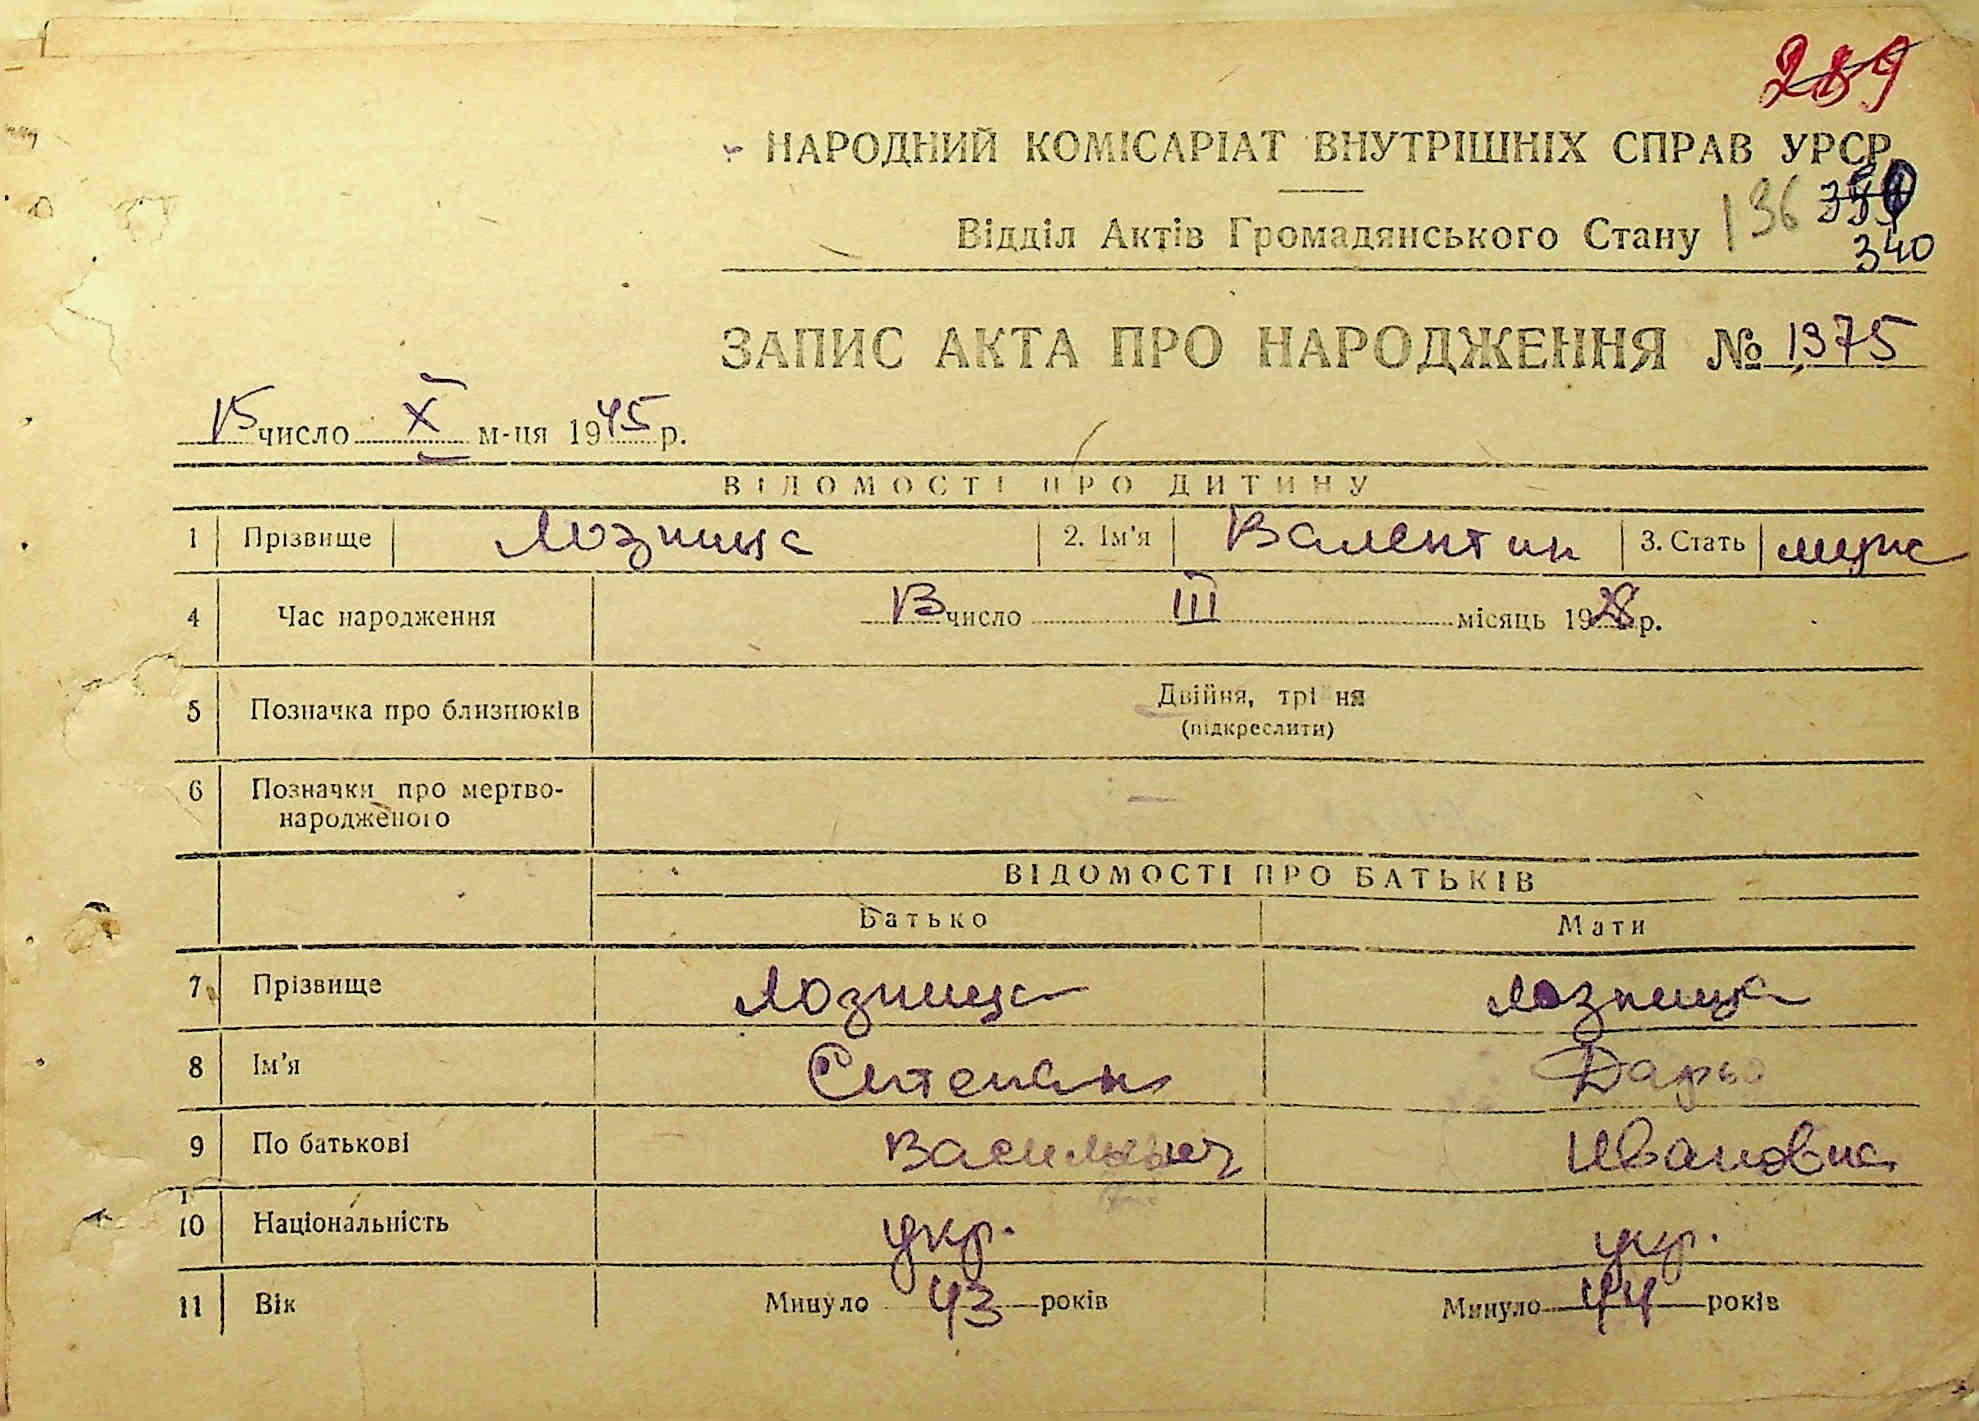 289
НАРОДНИЙ КОМІСАРІАТ ВНУТРІШНІХ СПРАВ УРСР
Відділ Актів Громадянського Стану 136
340
ЗАПИС АКТА ПРО НАРОДЖЕННЯ № 1375
15 число X м-ця 1945 р.
ВІДОМОСТІ ПРО ДИТИНУ
1 Прізвище Лозница 2. Ім'я Валентин 3. Стать муж
4 Час народження 13 число III місяць 1928 р.
5 Позначка про близнюків Двійня, трійня
(підкреслити)
6 Позначки про мертво-
народженого —
ВІДОМОСТІ ПРО БАТЬКІВ
Батько Мати
7 Прізвище Лозница Лозница
8 Ім'я Степан Дарья
9 По батькові Васильевич Ивановна
10 Національність укр. укр.
11 Вік Минуло 43 років Минуло 44 років